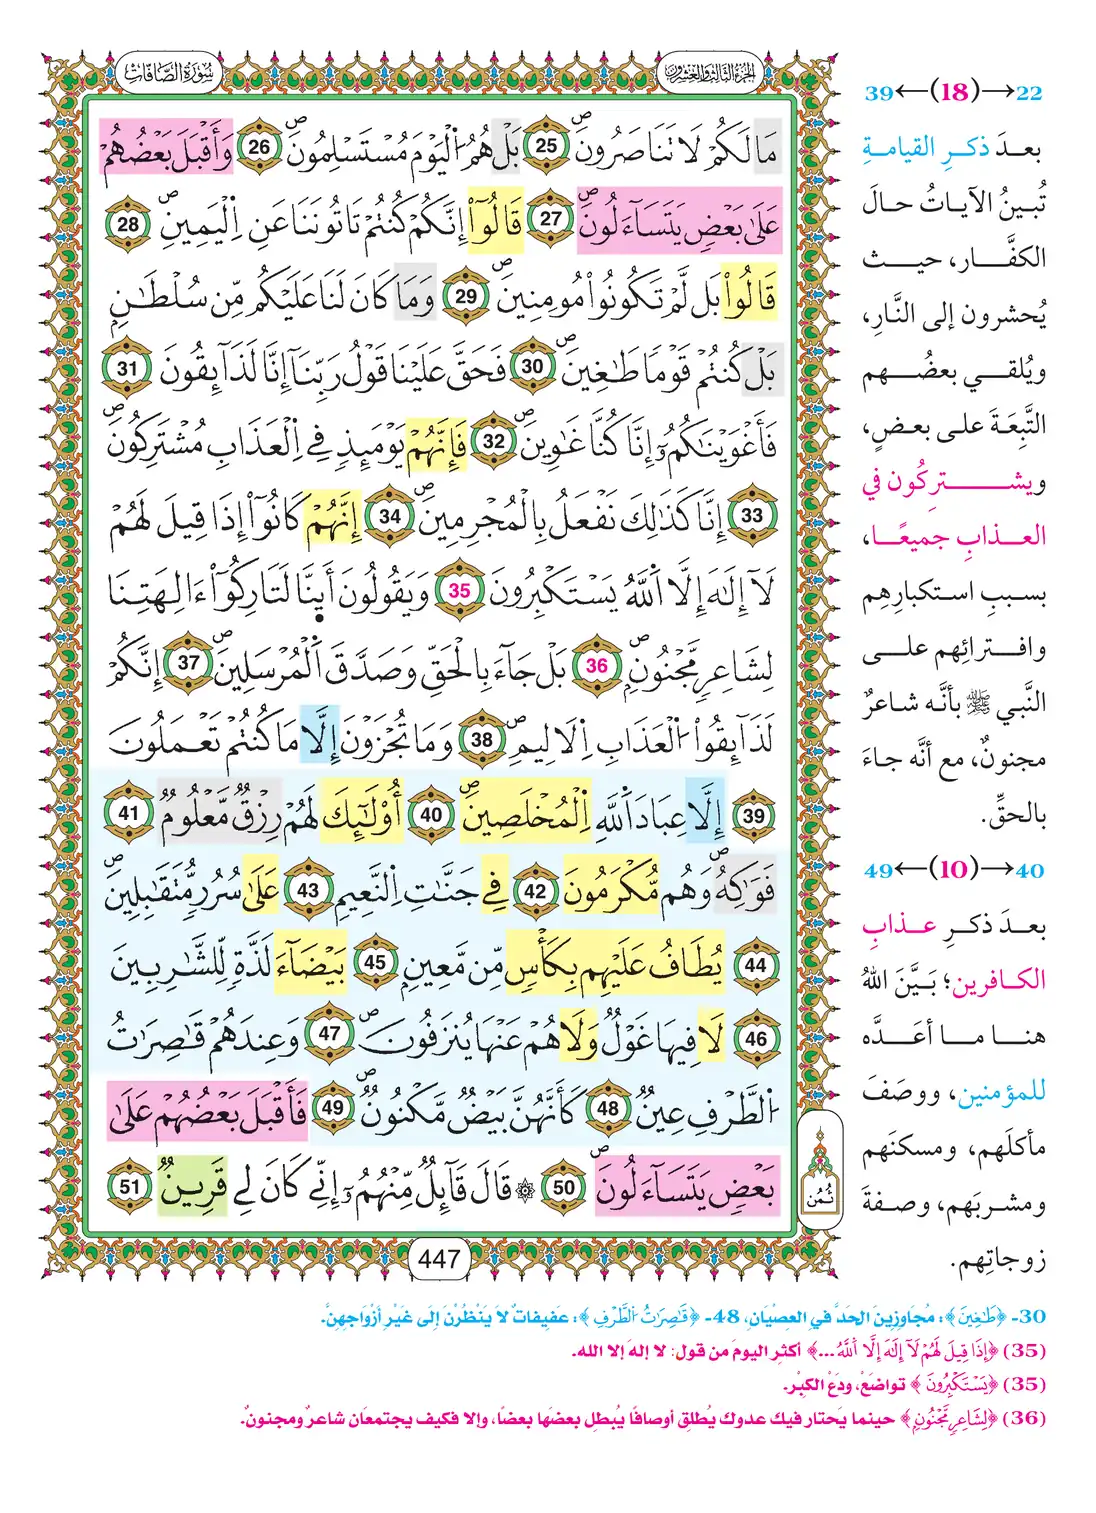 سُورَةُ الصَّافَّاتِ
الجُزْءُ الثَّالِثُ وَالعِشْرُونَ
مَا لَكُمْ لَا تَنَاصَرُونَۖ 25 بَلْ هُمُ اُ۬لْيَوْمَ مُسْتَسْلِمُونَۖ 26 وَأَقْبَلَ بَعْضُهُمْ
عَلَىٰ بَعْضٖ يَتَسَآءَلُونَۖ 27 قَالُوٓاْ إِنَّكُمْ كُنتُمْ تَاتُونَنَا عَنِ اِ۬لْيَمِينِۖ 28
قَالُواْ بَل لَّمْ تَكُونُواْ مُومِنِينَۖ 29 وَمَا كَانَ لَنَا عَلَيْكُم مِّن سُلْطَٰنِۢ
بَلْ كُنتُمْ قَوْماٗ طَٰغِينَۖ 30 فَحَقَّ عَلَيْنَا قَوْلُ رَبِّنَآ إِنَّا لَذَآئِقُونَ 31
فَأَغْوَيْنَٰكُمُۥٓ إِنَّا كُنَّا غَٰوِينَۖ 32 فَإِنَّهُمْ يَوْمَئِذٖ فِے اِ۬لْعَذَابِ مُشْتَرِكُونَۖ
33 إِنَّا كَذَٰلِكَ نَفْعَلُ بِالْمُجْرِمِينَۖ 34 إِنَّهُمْ كَانُوٓاْ إِذَا قِيلَ لَهُمْ
لَآ إِلَٰهَ إِلَّا اَ۬للَّهُ يَسْتَكْبِرُونَ 35 وَيَقُولُونَ أَئِنَّا لَتَارِكُوٓاْ ءَالِهَتِنَا
لِشَاعِرٖ مَّجْنُونِۢۖ 36 بَلْ جَآءَ بِالْحَقِّ وَصَدَّقَ اَ۬لْمُرْسَلِينَۖ 37 إِنَّكُمْ
لَذَآئِقُواْ اُ۬لْعَذَابِ اِ۬لَالِيمِۖ 38 وَمَا تُجْزَوْنَ إِلَّا مَا كُنتُمْ تَعْمَلُونَ
39 إِلَّا عِبَادَ اَ۬للَّهِ اِ۬لْمُخْلَصِينَۖ 40 أُوْلَٰٓئِكَ لَهُمْ رِزْقٞ مَّعْلُومٞ 41
فَوَٰكِهُۖ وَهُم مُّكْرَمُونَ 42 فِے جَنَّٰتِ اِ۬لنَّعِيمِ 43 عَلَىٰ سُرُرٖ مُّتَقَٰبِلِينَۖ
44 يُطَافُ عَلَيْهِم بِكَأْسٖ مِّن مَّعِينِۢ 45 بَيْضَآءَ لَذَّةٖ لِّلشَّٰرِبِينَ
46 لَا فِيهَا غَوْلٞ وَلَا هُمْ عَنْهَا يُنزَفُونَۖ 47 وَعِندَهُمْ قَٰصِرَٰتُ
اُ۬لطَّرْفِ عِينٞ 48 كَأَنَّهُنَّ بَيْضٞ مَّكْنُونٞۖ 49 فَأَقْبَلَ بَعْضُهُمْ عَلَىٰ
بَعْضٖ يَتَسَآءَلُونَۖ 50 ۞ قَالَ قَآئِلٞ مِّنْهُمُۥٓ إِنِّے كَانَ لِے قَرِينٞ 51
ثُمُن
447
39←(18)→22
بعدَ ذكرِ القيامةِ
تُبينُ الآياتُ حالَ
الكفَّار، حيث
يُحشرون إلى النَّارِ،
ويُلقي بعضُهم
التَّبِعَةَ على بعضٍ،
ويشترِكُون في
العذابِ جميعًا،
بسببِ استكبارِهِم
وافترائِهم على
النَّبي ﷺ بأنَّه شاعرٌ
مجنونٌ، مع أنَّه جاءَ
بالحقِّ.
49←(10)→40
بعدَ ذكرِ عذابِ
الكافرين؛ بَيَّنَ اللهُ
هنا ما أعَدَّه
للمؤمنين، ووصَفَ
مأكلَهم، ومسكنَهم
ومشربَهم، وصفةَ
زوجاتِهم.
30- ﴿طَٰغِينَ﴾: مُجَاوِزِينَ الحَدَّ فِي العِصْيَانِ، 48- ﴿قَٰصِرَٰتُ اُ۬لطَّرْفِ﴾: عَفِيفَاتٌ لَا يَنْظُرْنَ إِلَى غَيْرِ أَزْوَاجِهِنَّ.
(35) ﴿إِذَا قِيلَ لَهُمْ لَآ إِلَٰهَ إِلَّا اَ۬للَّهُ...﴾ أكثِر اليومَ من قول: لا إله إلا الله.
(35) ﴿يَسْتَكْبِرُونَ﴾ تواضَعْ، ودَعْ الكِبْر.
(36) ﴿لِشَاعِرٖ مَّجْنُونِۢ﴾ حينما يَحتار فيك عدوك يُطلِق أوصافًا يُبطِل بعضَها بعضًا، وإلا فكيف يجتمعَان شاعرٌ ومجنونٌ.